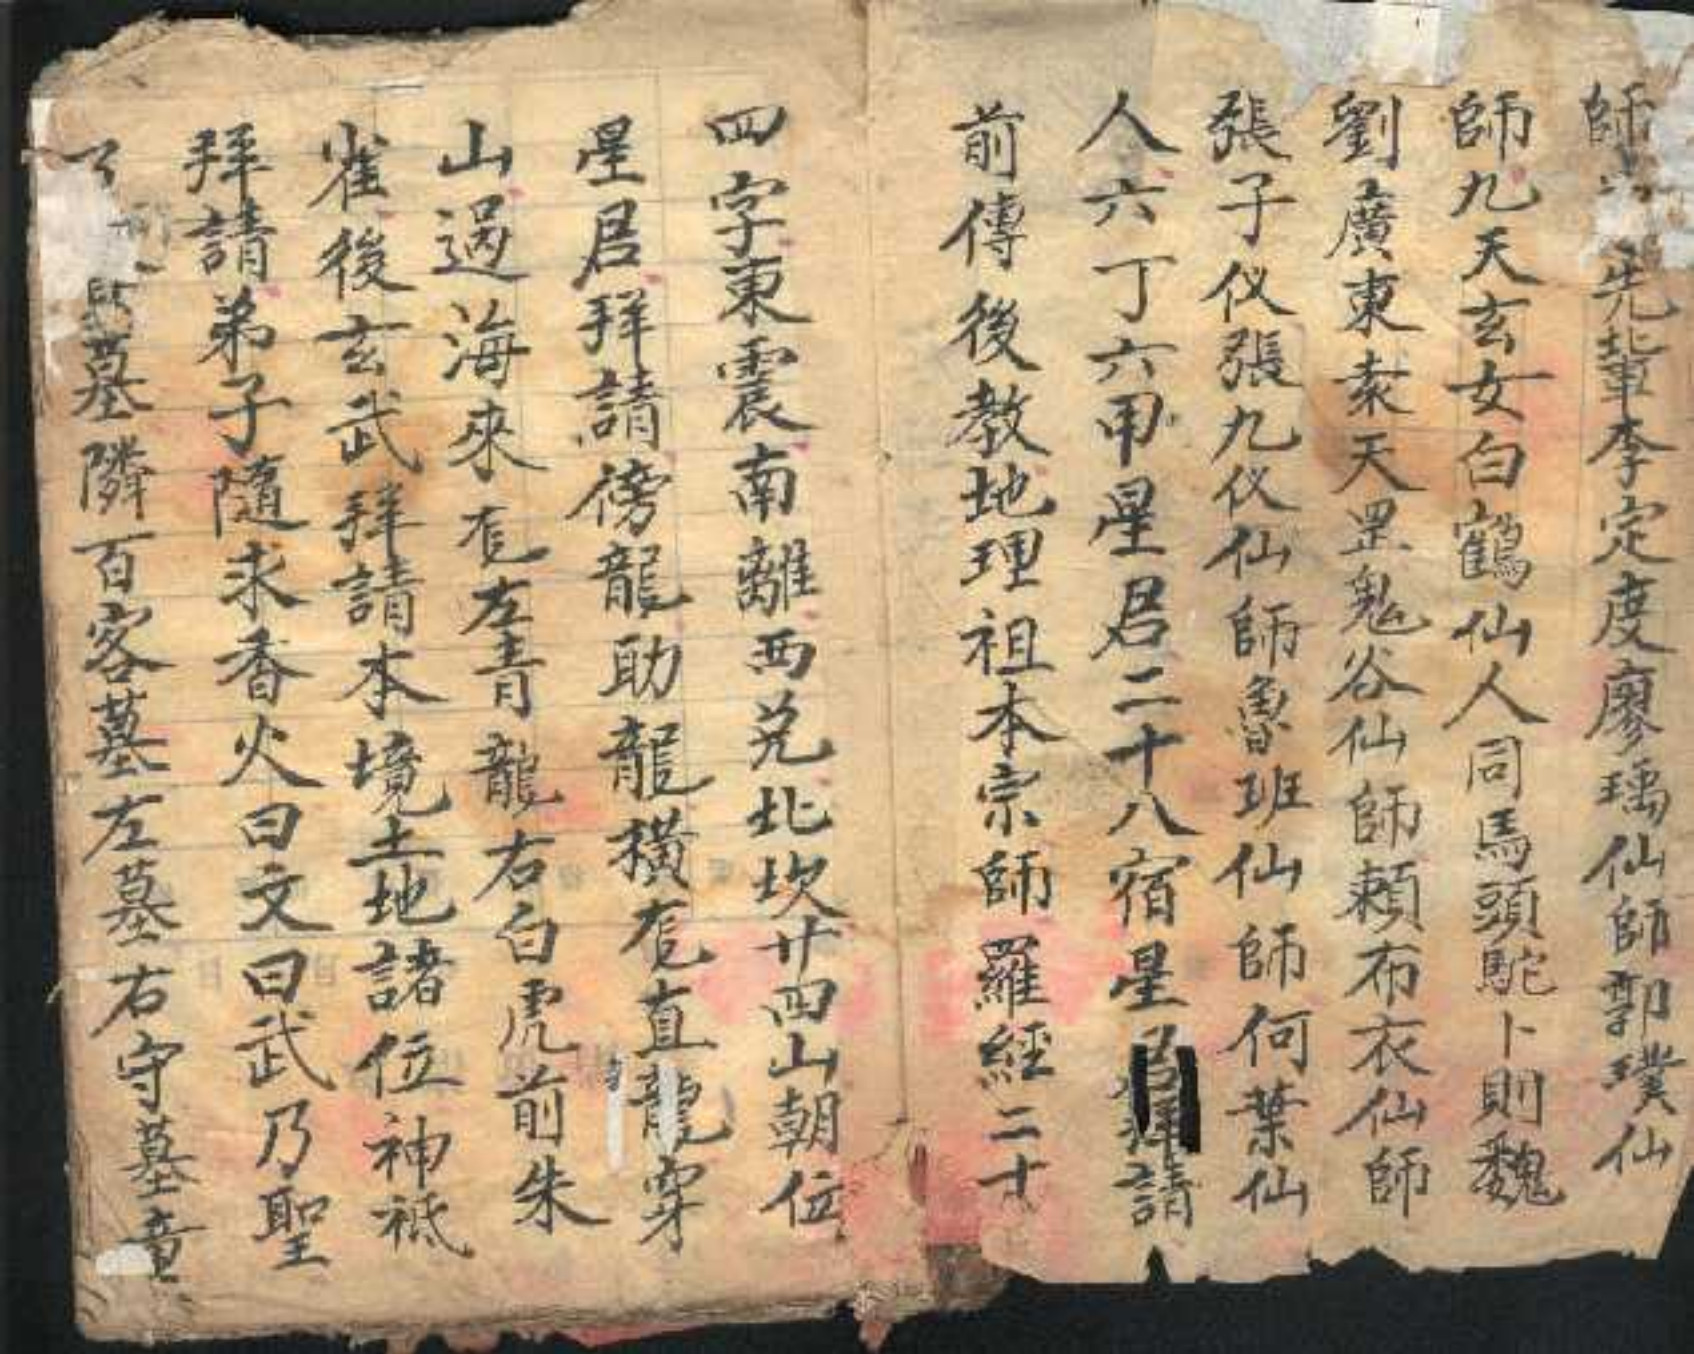 師先輩李定度廖瑀仙師郭璞仙
師九天玄女白鶴仙人同馬頭駝卜則魏
劉廣東袁天罡鬼谷仙師頼布衣仙師
張子仪張九仪仙師魯班仙師何葉仙
人六丁六甲星君二十八宿星君拜請
前傳後教地理祖本宗師羅經二十
四字東震南離西兑北坎廿四山朝位
星君拜請傍龍助龍橫龍直龍穿
山過海來龍左青龍右白虎前朱
雀後玄武拜請本境土地諸位神祗
拜請弟子隨求香火曰文曰武乃聖
墓隣百客墓左墓右守墓童